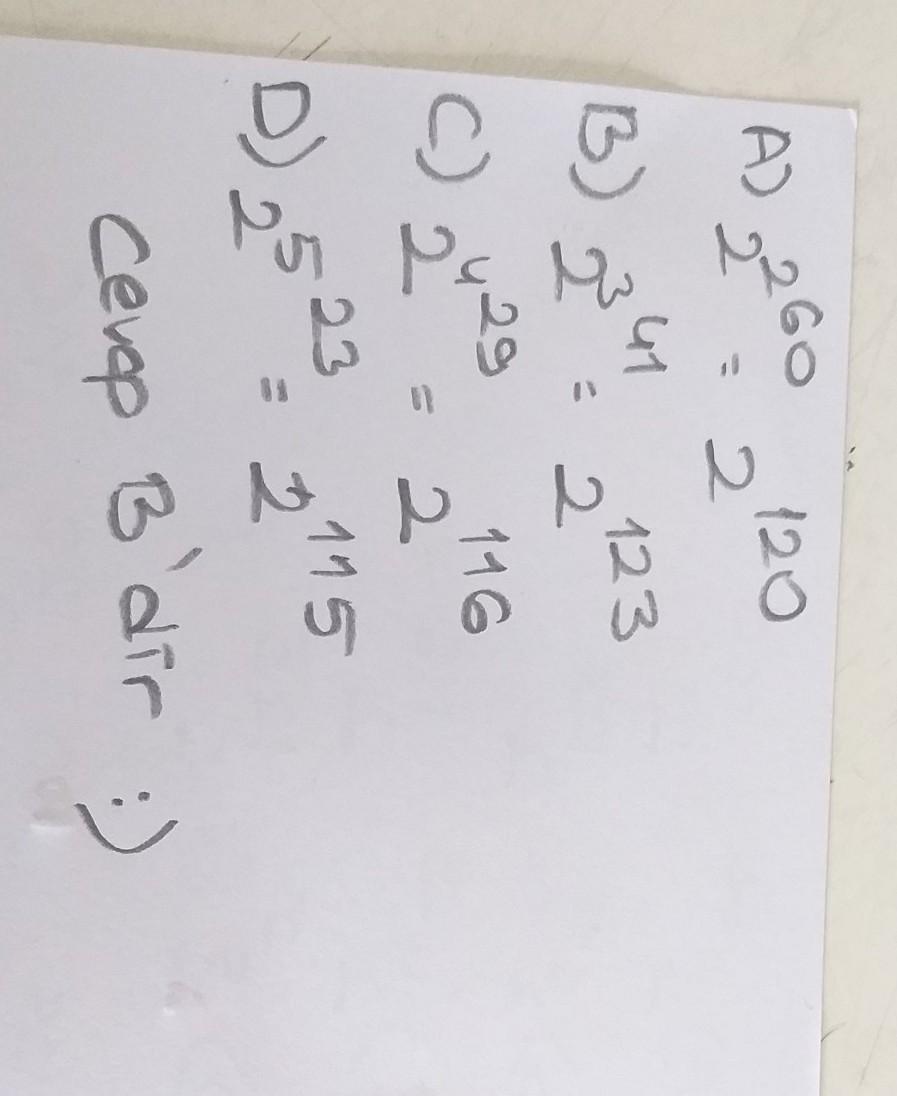 A) 2²⁶⁰ = 2¹²⁰
B) 2³⁴¹ = 2¹²³
C) 2⁴²⁹ = 2¹¹⁶
D) 2⁵²³ = 2¹¹⁵
Cevap B'dir :)